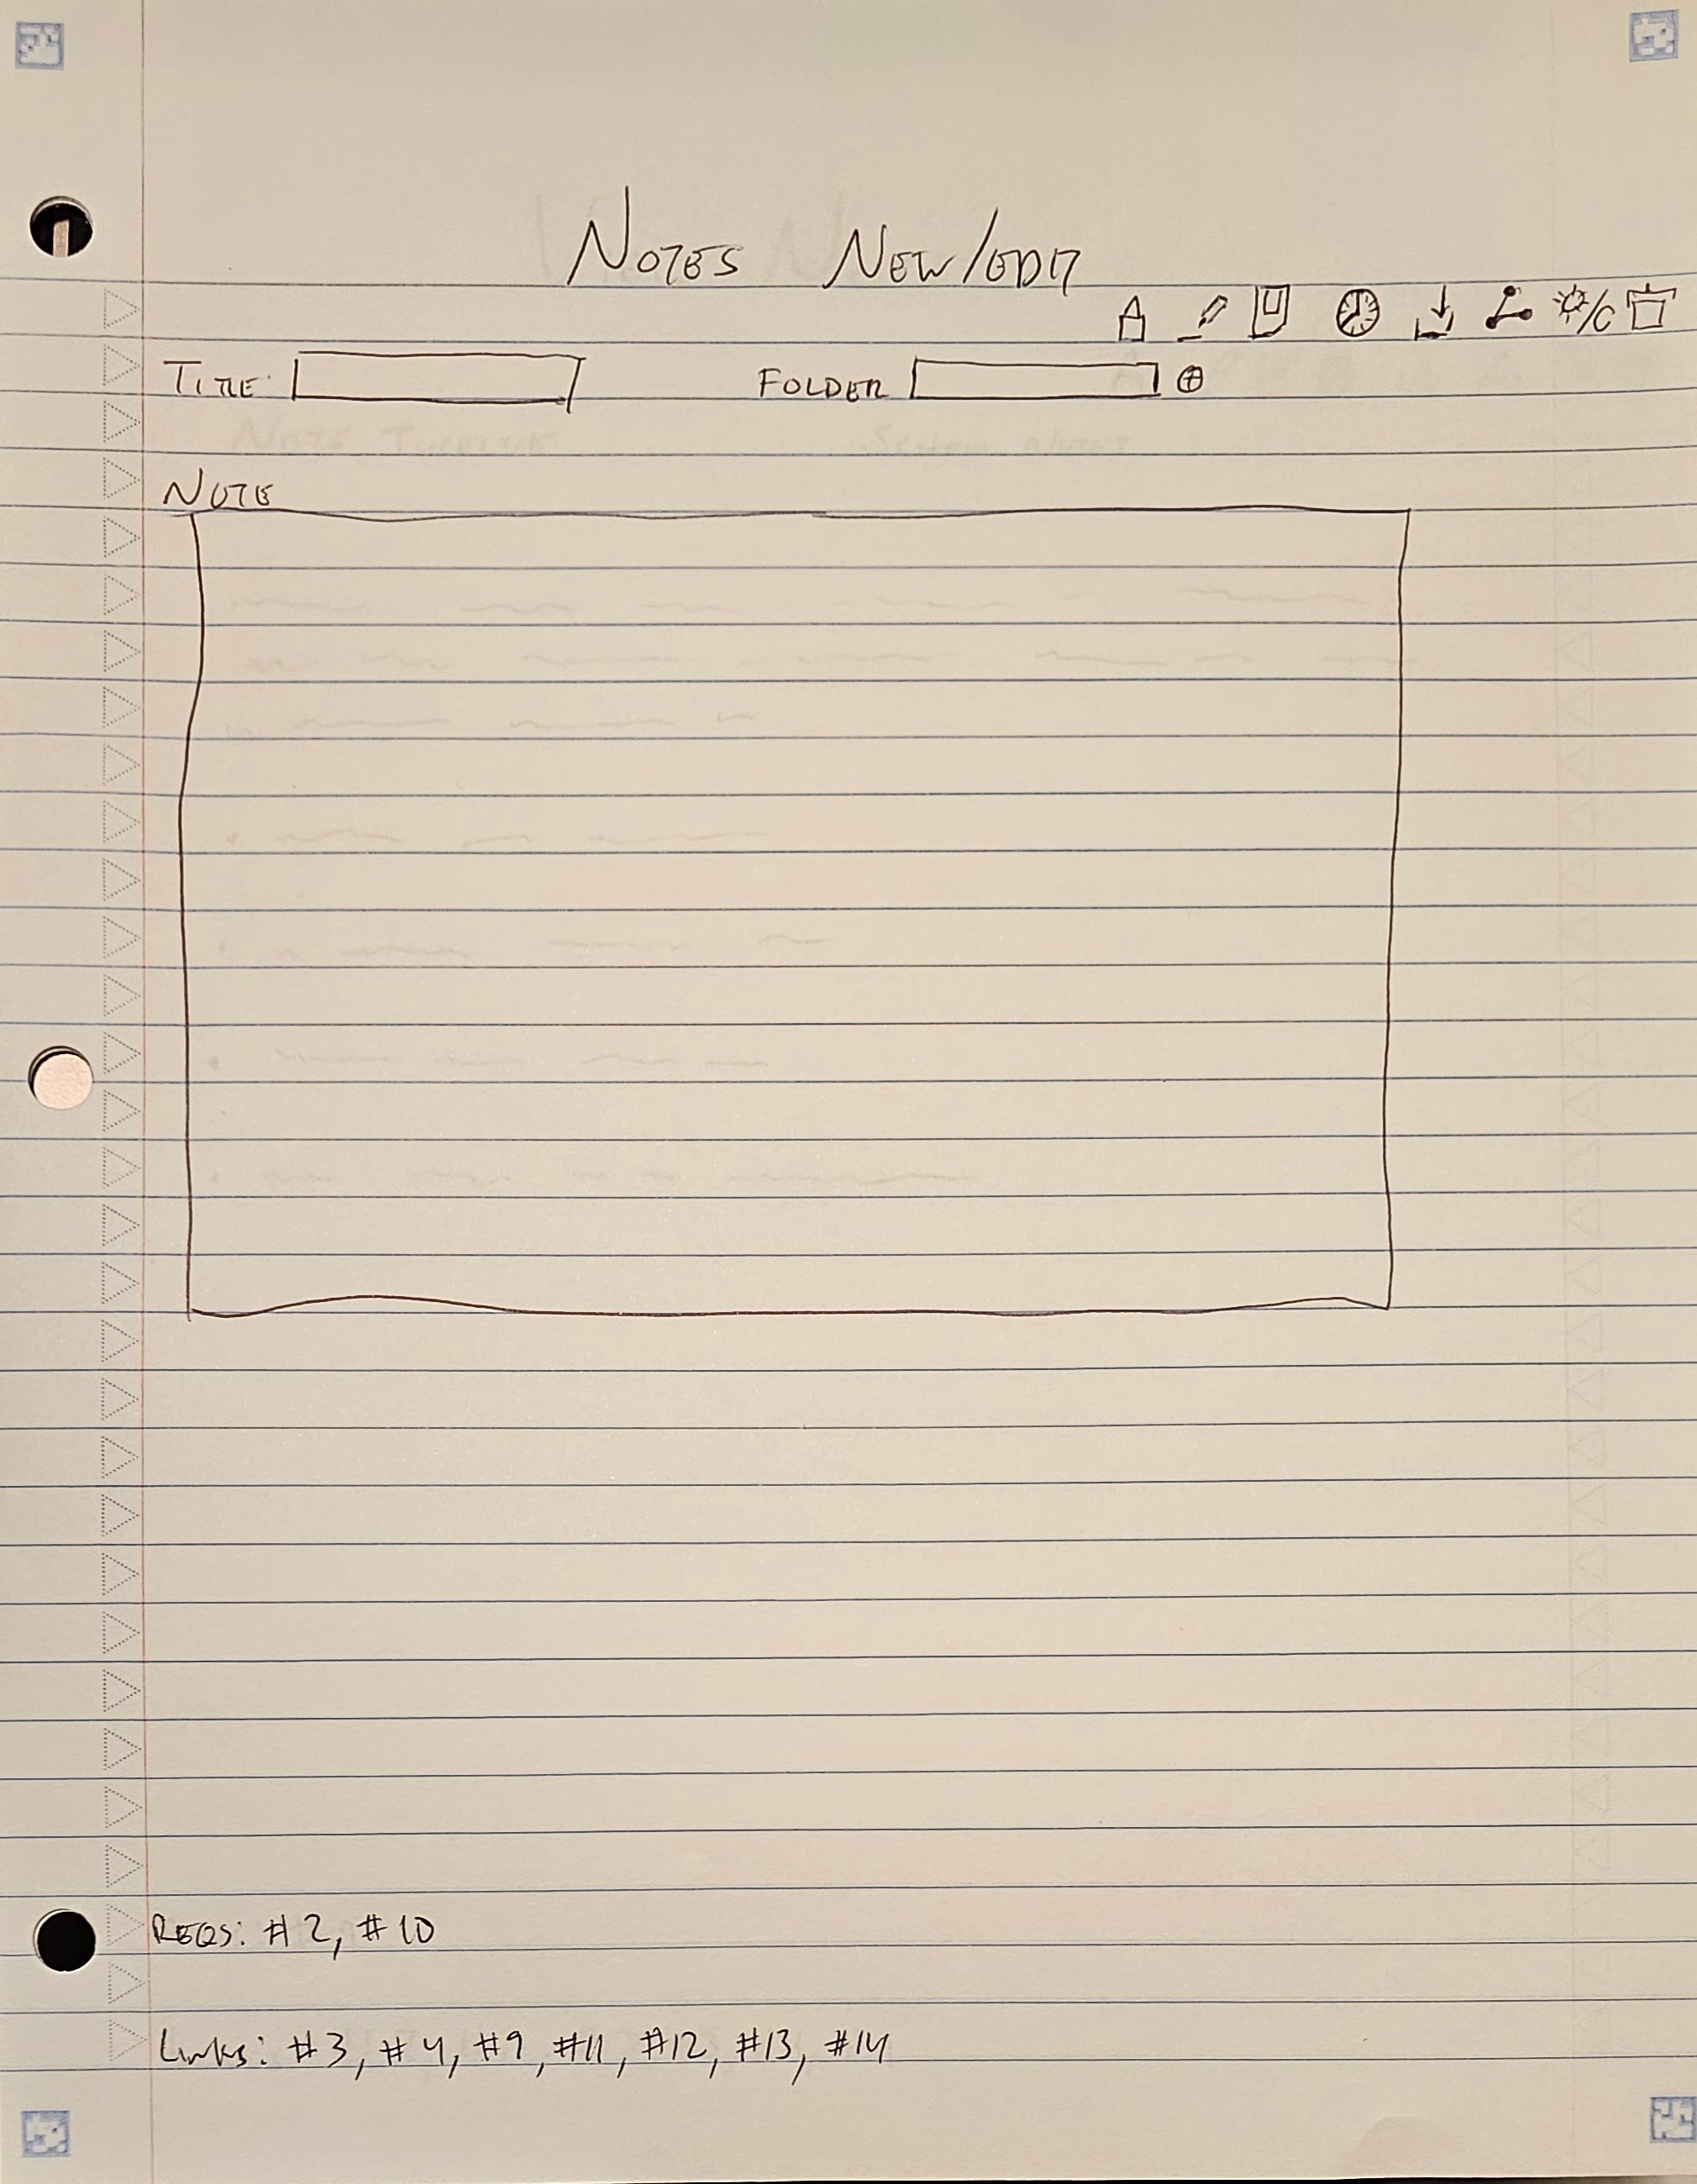 NOTES NEW/EDIT
TITLE
FOLDER
NOTE
REQS: #2, #10
Links: #3, #4, #9, #11, #12, #13, #14